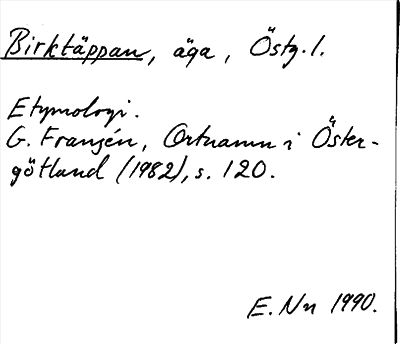 Birktäppan, äga, Östg. l.
Etymologi.
G. Franzén, Ortnamn i Öster-
götland (1982), s. 120.
E. Nn 1990.